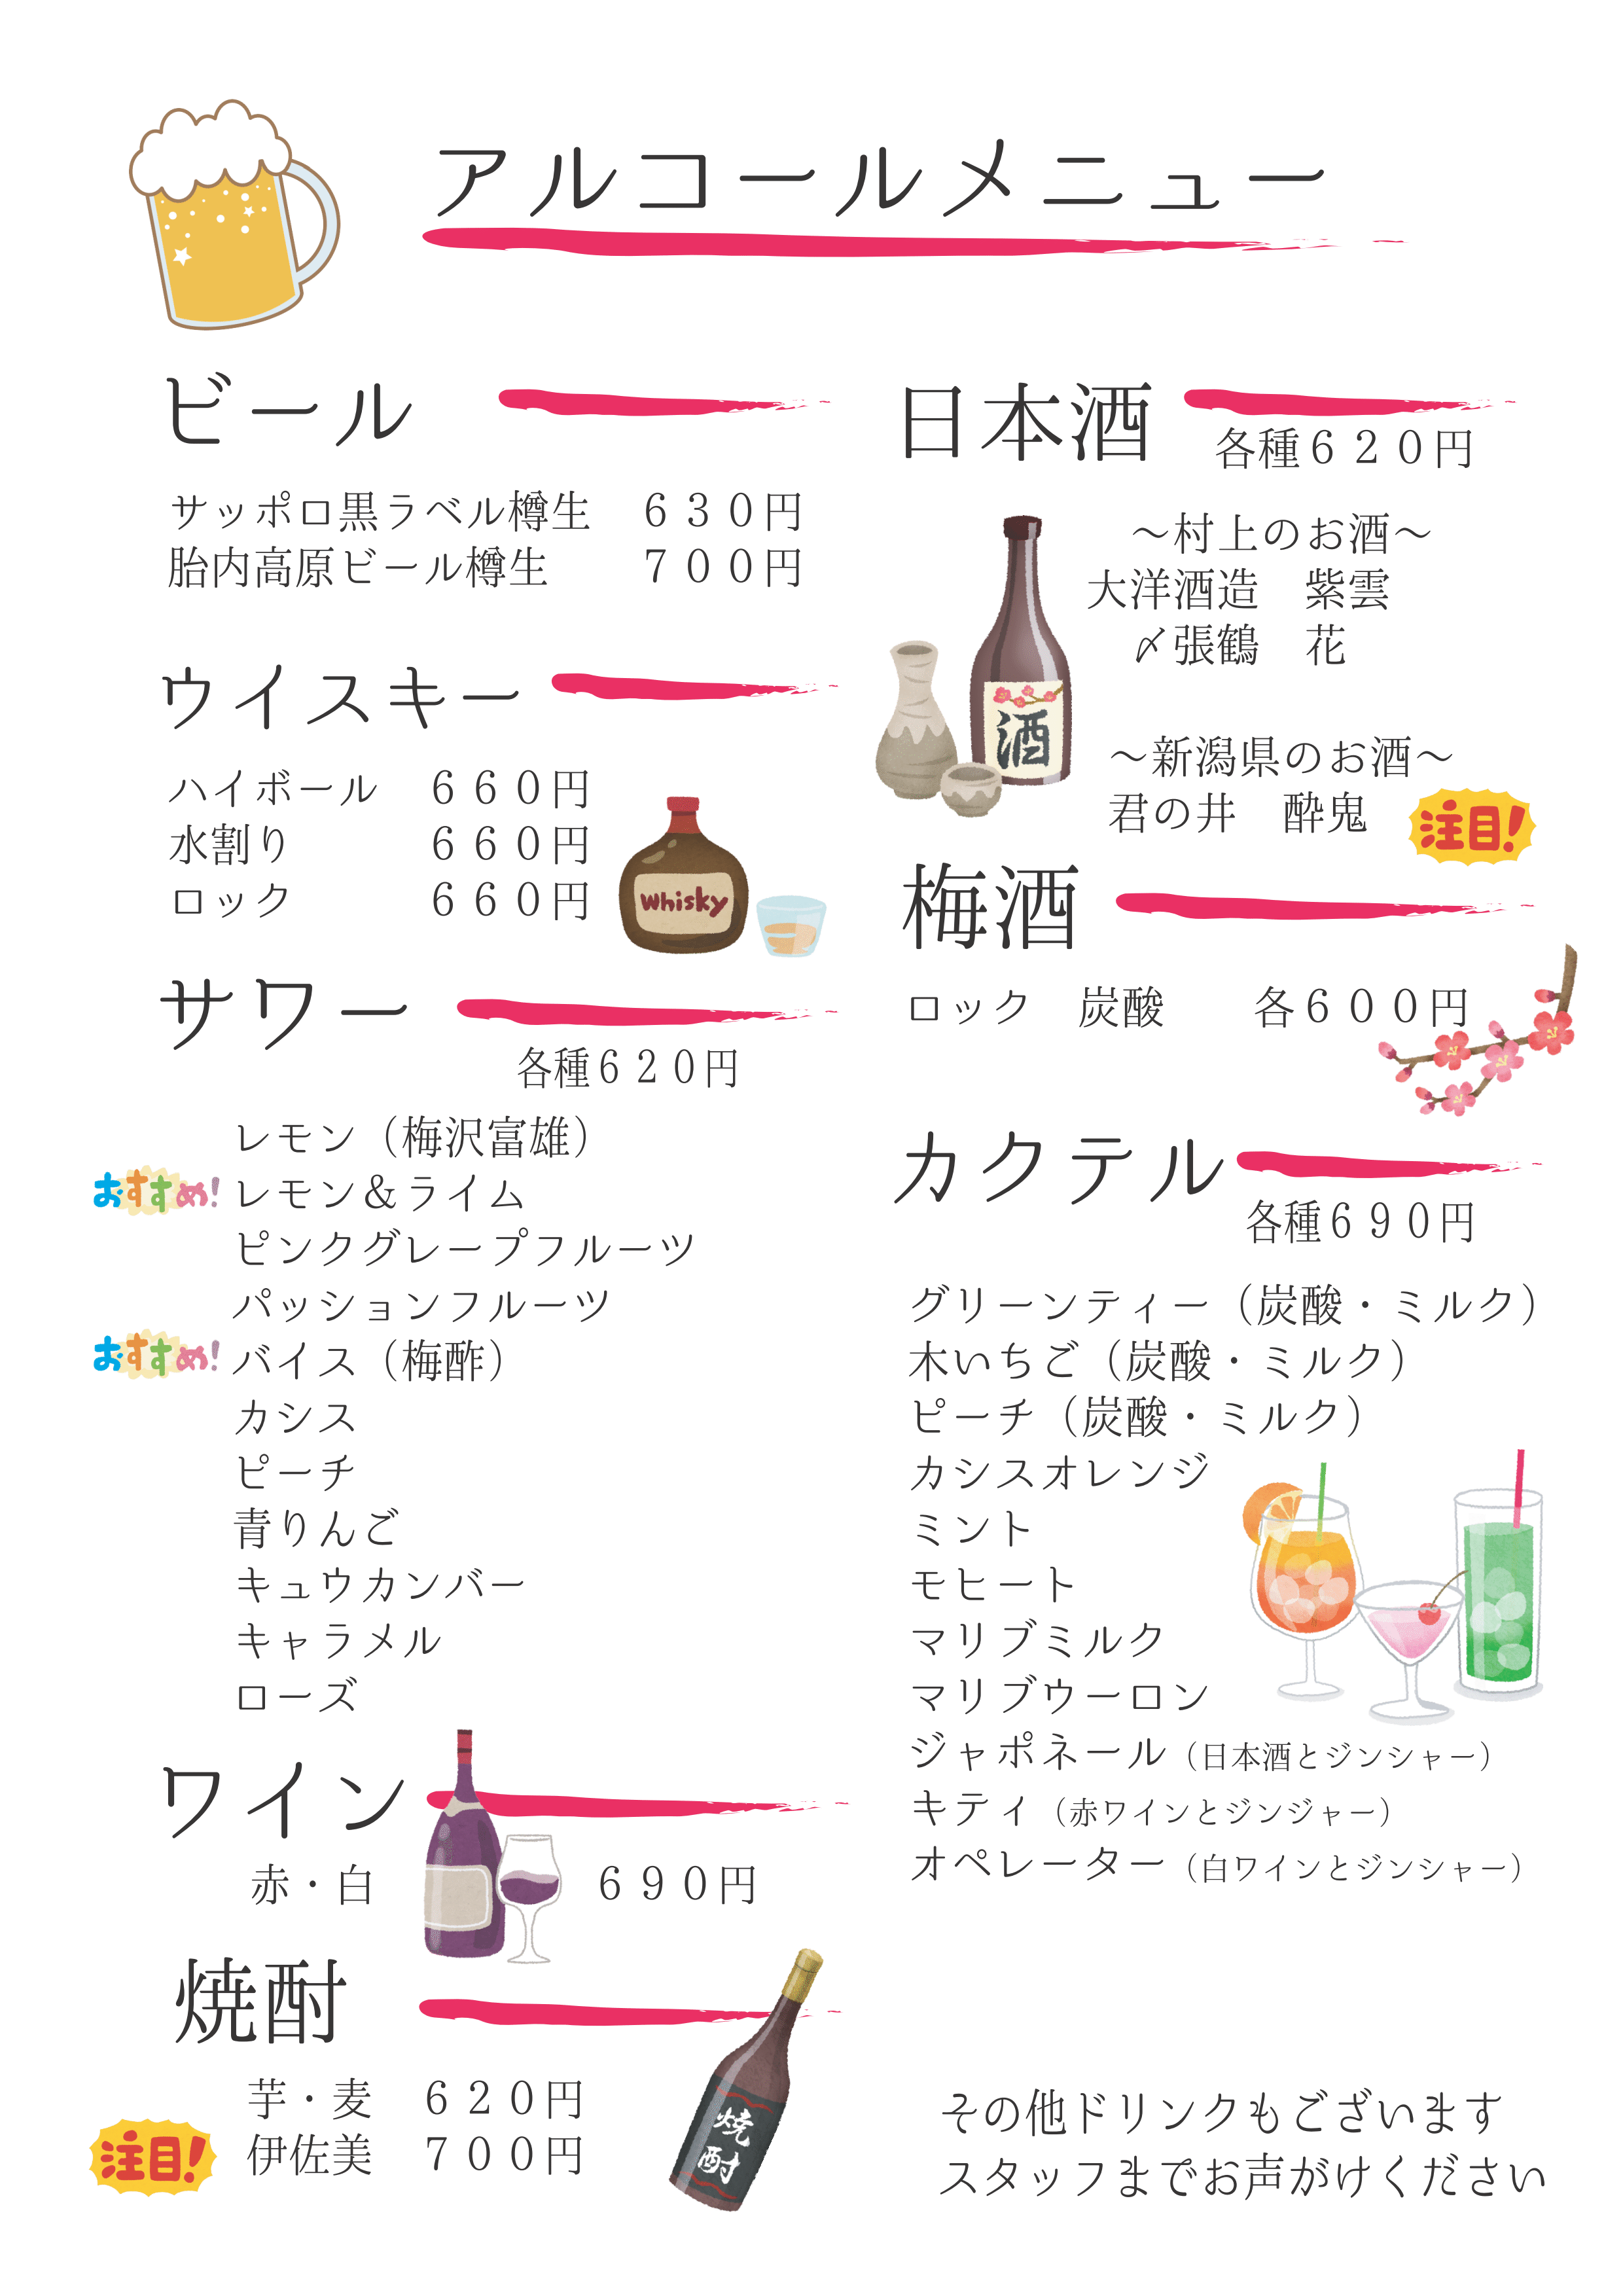 アルコールメニュー
ビール
サッポロ黒ラベル樽生　６３０円
胎内高原ビール樽生　７００円
ウイスキー
ハイボール　６６０円
水割り　６６０円
ロック　６６０円
Whisky
サワー
各種６２０円
レモン（梅沢富雄）
おすすめ！ レモン＆ライム
ピンクグレープフルーツ
パッションフルーツ
おすすめ！ バイス（梅酢）
カシス
ピーチ
青りんご
キュウカンバー
キャラメル
ローズ
ワイン
赤・白　６９０円
焼酎
芋・麦　６２０円
注目！ 伊佐美　７００円
焼酎
日本酒
各種６２０円
～村上のお酒～
大洋酒造　紫雲
〆張鶴　花
酒
～新潟県のお酒～
君の井　酔鬼 注目！
梅酒
ロック　炭酸　各６００円
カクテル
各種６９０円
グリーンティー（炭酸・ミルク）
木いちご（炭酸・ミルク）
ピーチ（炭酸・ミルク）
カシスオレンジ
ミント
モヒート
マリブミルク
マリブウーロン
ジャポネール（日本酒とジンシャー）
キティ（赤ワインとジンジャー）
オペレーター（白ワインとジンシャー）
その他ドリンクもございます
スタッフまでお声がけください